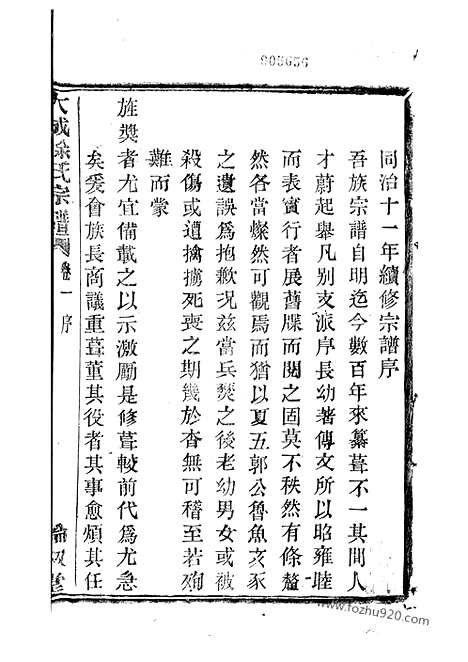 003656
同治十一年續修宗譜序
吾族宗譜自明迄今數百年來纂葺不一其間人
才蔚起舉凡別支派序長幼著傳文所以昭雍睦
而表實行者展舊牒而閱之固莫不秩然有條釐
然各當燦然可觀焉而猶以夏五郭公魯魚亥豕
之遺誤爲抱歉况兹當兵燹之後老幼男女或被
殺傷或遭擒擄死喪之期幾於杳無可稽至若殉
難而蒙
旌獎者尤宜備載之以示激厲是修葺較前代爲尤急
矣爰會族長商議重葺董其役者其事愈煩其任
大成徐氏宗譜 卷一 序
www.fozhu920.com